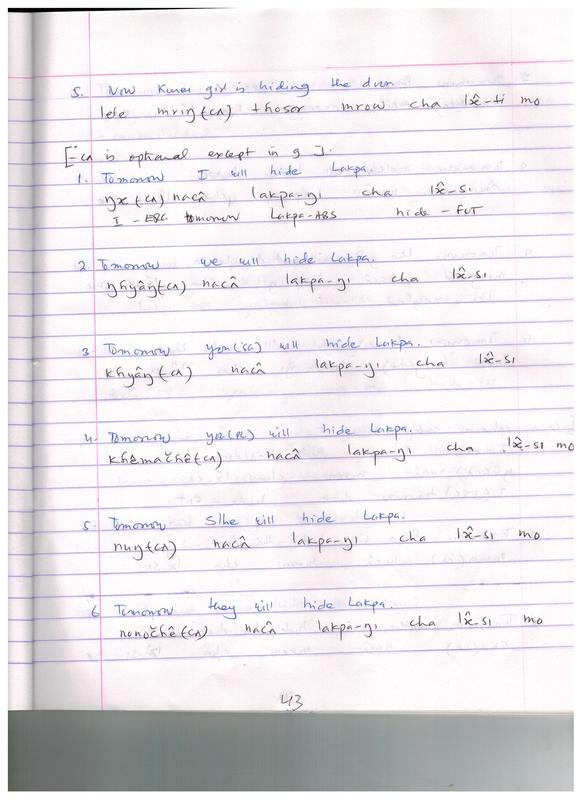 5. Now Kumar girl is hiding the drum
lele mriŋ(cʌ) thosor mrow cha lx̂-ti mo
[-cʌ is optional except in 9].
1. Tomorrow I will hide Lakpa.
ŋx(cʌ) nacʌ̂ lakpa-ŋı cha lx̂-sı
I - ERG tomorrow Lakpa-ABS hide - FUT
2. Tomorrow we will hide Lakpa.
ŋhyâŋ(cʌ) nacʌ̂ lakpa-ŋı cha lx̂-sı
3. Tomorrow you(SG) will hide Lakpa.
khyâŋ(cʌ) nacʌ̂ lakpa-ŋı cha lx̂-sı
4. Tomorrow you(PL) will hide Lakpa.
khêmačhê(cʌ) nacʌ̂ lakpa-ŋı cha lx̂-sı mo
5. Tomorrow S/he will hide Lakpa.
nuŋ(cʌ) nacʌ̂ lakpa-ŋı cha lx̂-sı mo
6 Tomorrow they will hide Lakpa.
nonočhê(cʌ) nacʌ̂ lakpa-ŋı cha lx̂-sı mo
43